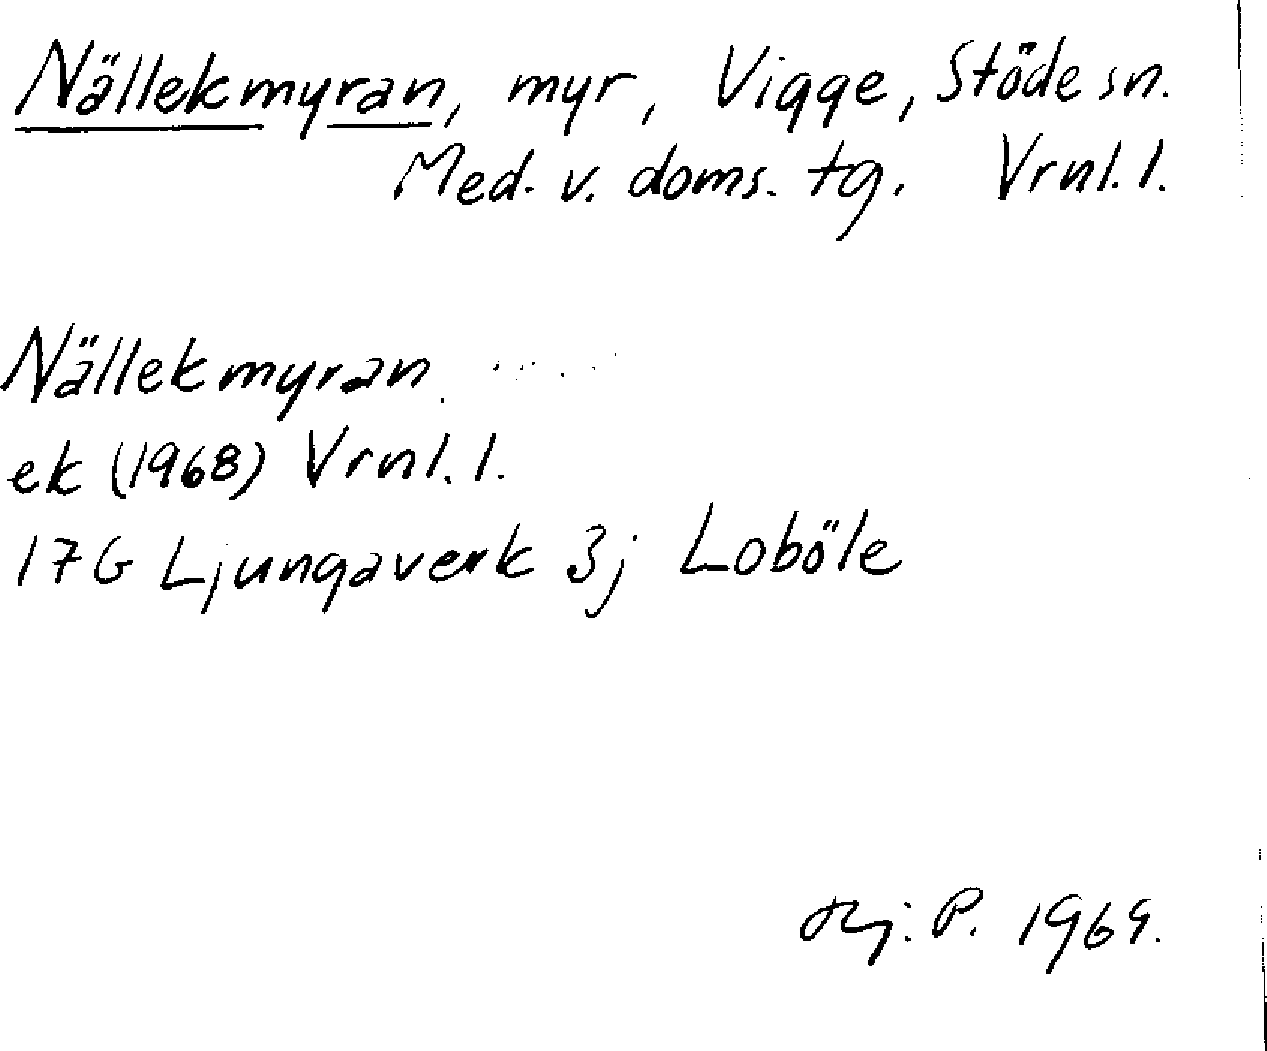 Nällekmyran, myr, Vigge, Stöde sn.
Med. v. doms. tg. Vrnl. l.
Nällekmyran
ek (1968) Vrnl. l.
17G Ljungaverk 3j Loböle
Hj. P. 1969.